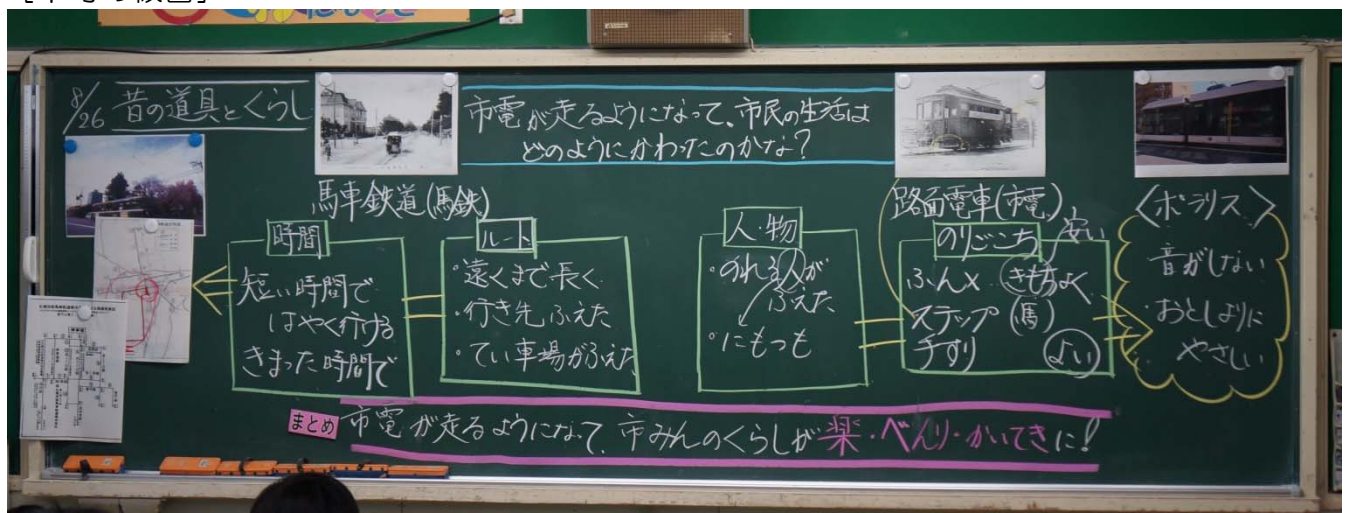 8/26 昔の道具とくらし
市電が走るようになって、市民の生活は
どのようにかわったのかな?
馬車鉄道(馬鉄)
時間
短い時間で
はやく行ける
きまった時間で
ルート
・遠くまで長く
・行き先ふえた
・てい車場がふえた
人・物
・のれる人が
ふえた
・にもつも
路面電車(市電)
のりごこち
安い
ふん× きもちよく
ステップ (馬)
手すり よい
〈ポラリス〉
音がしない
・おとしよりに
やさしい
まとめ 市電が走るようになって、市みんのくらしが楽・べんり・かいてきに!